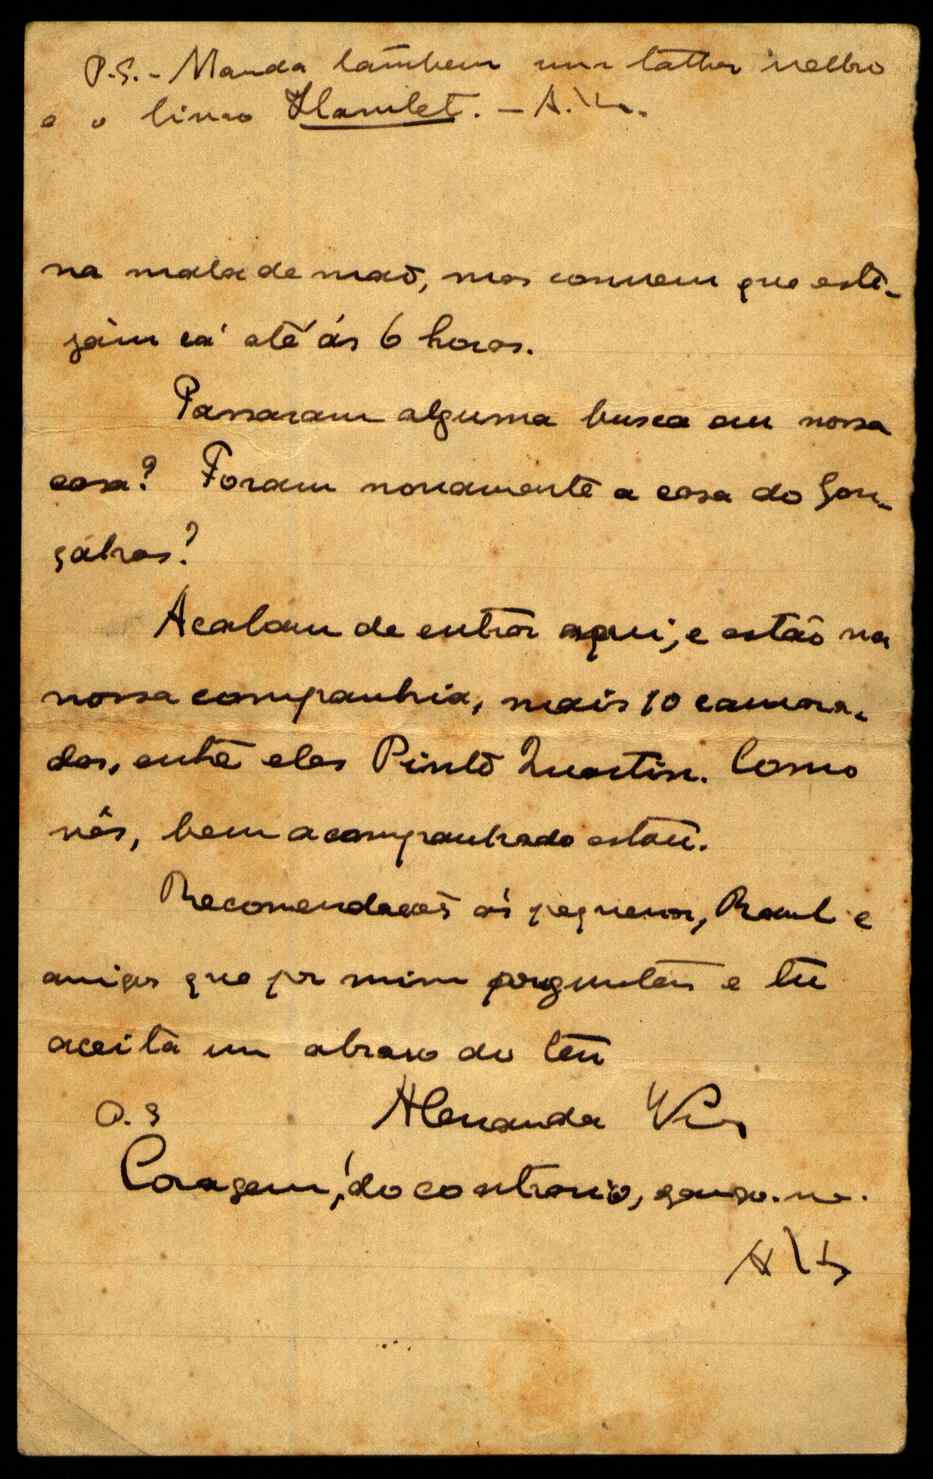 P.S. - Manda tambem um talher velho
e o livro Hamlet. - A. V.
na mala de maõ, mas convem que este-
jám cá até ás 6 horas.
Passaram alguma busca em nossa
casa? Foram novamente a casa do Gon-
çalves?
Acabam de entrar aqui, e estão na
nossa companhia, mais 10 camara-
das, entre eles Pinto Quartin. Como
vês, bem acompanhado estou.
Recomendações ás pequenas, Raul e
amigos que por mim perguntem e tu
aceita um abraço do teu
Alexandre Vieira
P.S
Coragem, do contrario, zango-me.
A V